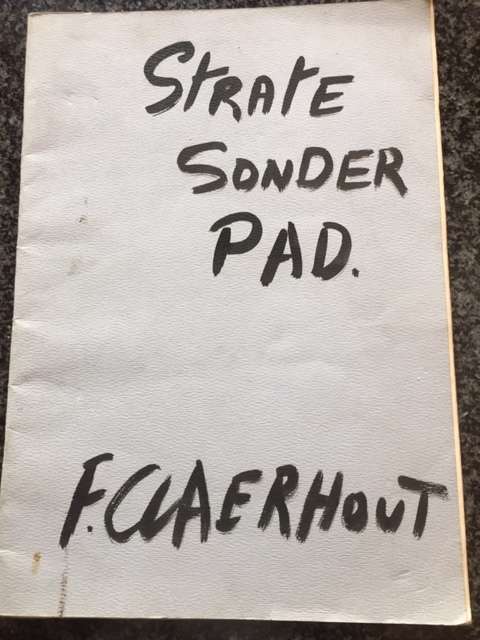 StRAtE
SONDER
PAD.
F. CLAERHOUT